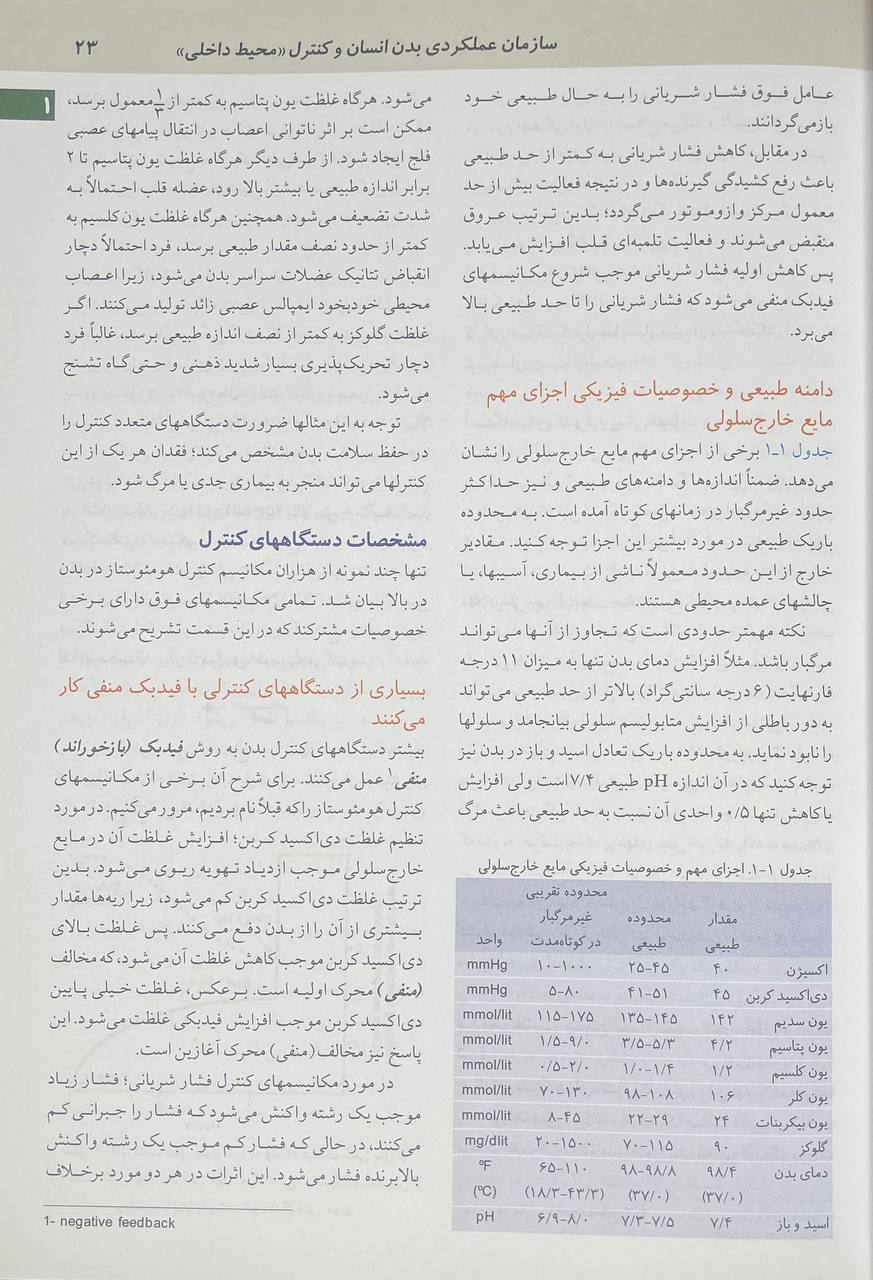 سازمان عملکردی بدن انسان و کنترل «محیط داخلی»
۲۳
۱
عامل فوق فشار شریانی را به حال طبیعی خود
بازمی‌گردانند.
در مقابل، کاهش فشار شریانی به کمتر از حد طبیعی
باعث رفع کشیدگی گیرنده‌ها و در نتیجه فعالیت بیش از حد
معمول مرکز وازوموتور می‌گردد؛ بدین ترتیب عروق
منقبض می‌شوند و فعالیت تلمبه‌ای قلب افزایش می‌یابد.
پس کاهش اولیه فشار شریانی موجب شروع مکانیسمهای
فیدبک منفی می‌شود که فشار شریانی را تا حد طبیعی بالا
می‌برد.
دامنه طبیعی و خصوصیات فیزیکی اجزای مهم
مایع خارج‌سلولی
جدول ۱-۱ برخی از اجزای مهم مایع خارج‌سلولی را نشان
می‌دهد. ضمناً اندازه‌ها و دامنه‌های طبیعی و نیز حداکثر
حدود غیرمرگبار در زمانهای کوتاه آمده است. به محدوده
باریک طبیعی در مورد بیشتر این اجزا توجه کنید. مقادیر
خارج از این حدود معمولاً ناشی از بیماری، آسیبها، یا
چالشهای عمده محیطی هستند.
نکته مهمتر حدودی است که تجاوز از آنها می‌تواند
مرگبار باشد. مثلاً افزایش دمای بدن تنها به میزان ۱۱ درجه
فارنهایت (۶ درجه سانتی‌گراد) بالاتر از حد طبیعی می‌تواند
به دور باطلی از افزایش متابولیسم سلولی بیانجامد و سلولها
را نابود نماید. به محدوده باریک تعادل اسید و باز در بدن نیز
توجه کنید که در آن اندازه pH طبیعی ۷/۴ است ولی افزایش
یا کاهش تنها ۰/۵ واحدی آن نسبت به حد طبیعی باعث مرگ
جدول ۱-۱. اجزای مهم و خصوصیات فیزیکی مایع خارج‌سلولی
مقدار طبیعی محدوده طبیعی محدوده تقریبی غیرمرگبار در کوتاه‌مدت واحد
اکسیژن ۴۰ ۲۵-۴۵ ۱۰-۱۰۰۰ mmHg
دی‌اکسید کربن ۴۵ ۴۱-۵۱ ۵-۸۰ mmHg
یون سدیم ۱۴۲ ۱۳۵-۱۴۵ ۱۱۵-۱۷۵ mmol/lit
یون پتاسیم ۴/۲ ۳/۵-۵/۳ ۱/۵-۹/۰ mmol/lit
یون کلسیم ۱/۲ ۱/۰-۱/۴ ۰/۵-۲/۰ mmol/lit
یون کلر ۱۰۶ ۹۸-۱۰۸ ۷۰-۱۳۰ mmol/lit
یون بیکربنات ۲۴ ۲۲-۲۹ ۸-۴۵ mmol/lit
گلوکز ۹۰ ۷۰-۱۱۵ ۲۰-۱۵۰۰ mg/dlit
دمای بدن ۹۸/۴ ۹۸-۹۸/۸ ۶۵-۱۱۰ °F
(۳۷/۰) (۳۷/۰) (۱۸/۳-۴۳/۳) (°C)
اسید و باز ۷/۴ ۷/۳-۷/۵ ۶/۹-۸/۰ pH
می‌شود. هرگاه غلظت یون پتاسیم به کمتر از ۱/۳ معمول برسد،
ممکن است بر اثر ناتوانی اعصاب در انتقال پیامهای عصبی
فلج ایجاد شود. از طرف دیگر هرگاه غلظت یون پتاسیم تا ۲
برابر اندازه طبیعی یا بیشتر بالا رود، عضله قلب احتمالاً به
شدت تضعیف می‌شود. همچنین هرگاه غلظت یون کلسیم به
کمتر از حدود نصف مقدار طبیعی برسد، فرد احتمالاً دچار
انقباض تتانیک عضلات سراسر بدن می‌شود، زیرا اعصاب
محیطی خودبخود ایمپالس عصبی زائد تولید می‌کنند. اگر
غلظت گلوکز به کمتر از نصف اندازه طبیعی برسد، غالباً فرد
دچار تحریک‌پذیری بسیار شدید ذهنی و حتی گاه تشنج
می‌شود.
توجه به این مثالها ضرورت دستگاههای متعدد کنترل را
در حفظ سلامت بدن مشخص می‌کند؛ فقدان هر یک از این
کنترلها می تواند منجر به بیماری جدی یا مرگ شود.
مشخصات دستگاههای کنترل
تنها چند نمونه از هزاران مکانیسم کنترل هومئوستاز در بدن
در بالا بیان شد. تمامی مکانیسمهای فوق دارای برخی
خصوصیات مشترکند که در این قسمت تشریح می‌شوند.
بسیاری از دستگاههای کنترلی با فیدبک منفی کار
می‌کنند
بیشتر دستگاههای کنترل بدن به روش فیدبک (بازخوراند)
منفی۱ عمل می‌کنند. برای شرح آن برخی از مکانیسمهای
کنترل هومئوستاز را که قبلاً نام بردیم، مرور می‌کنیم. در مورد
تنظیم غلظت دی‌اکسید کربن؛ افزایش غلظت آن در مایع
خارج‌سلولی موجب ازدیاد تهویه ریوی می‌شود. بدین
ترتیب غلظت دی‌اکسید کربن کم می‌شود، زیرا ریه‌ها مقدار
بیشتری از آن را از بدن دفع می‌کنند. پس غلظت بالای
دی‌اکسید کربن موجب کاهش غلظت آن می‌شود، که مخالف
(منفی) محرک اولیه است. برعکس، غلظت خیلی پایین
دی‌اکسید کربن موجب افزایش فیدبکی غلظت می‌شود. این
پاسخ نیز مخالف (منفی) محرک آغازین است.
در مورد مکانیسمهای کنترل فشار شریانی؛ فشار زیاد
موجب یک رشته واکنش می‌شود که فشار را جبرانی کم
می‌کنند، در حالی که فشار کم موجب یک رشته واکنش
بالابرنده فشار می‌شود. این اثرات در هر دو مورد برخلاف
1- negative feedback